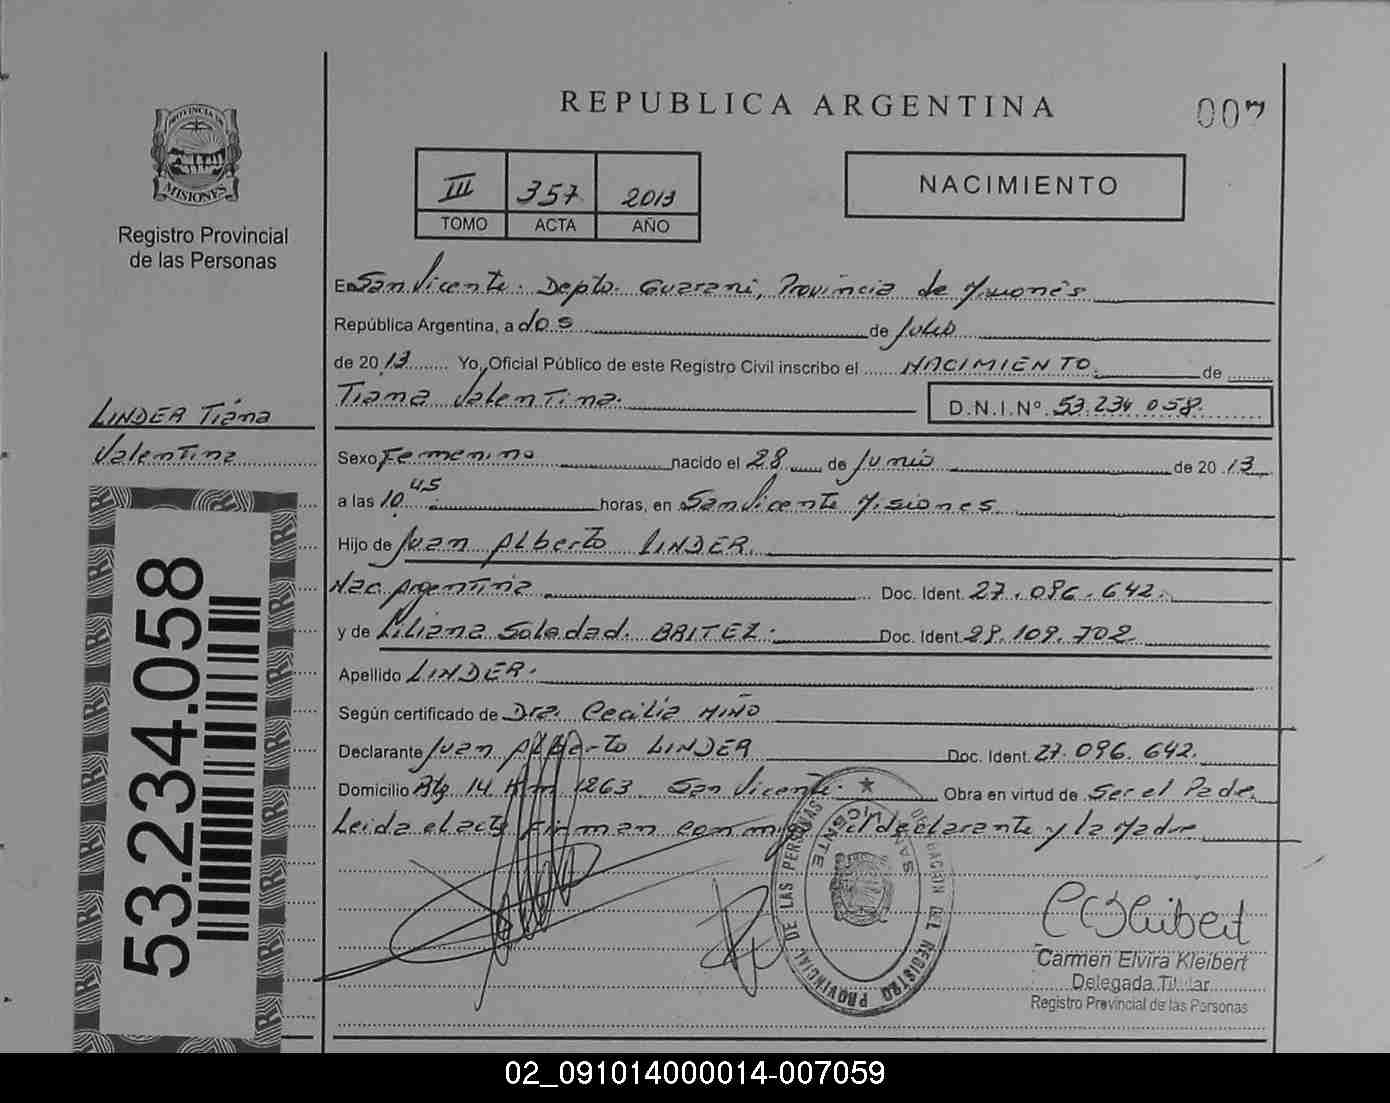 REPUBLICA ARGENTINA
007
PROVINCIA DE
MISIONES
Registro Provincial
de las Personas
III 357 2013
TOMO ACTA AÑO
NACIMIENTO
En San Vicente. Depto. Guarani, Provincia de Misiones
República Argentina, a dos de Julio
de 2013 Yo, Oficial Público de este Registro Civil inscribo el NACIMIENTO de
Tiana Valentina. D.N.I.Nº 53.234.058.
LINDER Tiana
Valentina
Sexo Femenino nacido el 28 de Junio de 2013
a las 10,45 horas, en San Vicente Misiones
Hijo de Juan Alberto LINDER.
Nac. Argentina Doc. Ident. 27.096.642.
y de Liliana Soledad. BRITEZ. Doc. Ident. 28.109.702
Apellido LINDER.
Según certificado de Dra. Cecilia MIÑO
Declarante Juan Alberto LINDER Doc. Ident. 27.096.642.
Domicilio 14 Km 1263 San Vicente. Obra en virtud de Ser el Padre
Leida el acta firman conmigo el declarante y la Madre
53.234.058
DELEGACION DEL REGISTRO PROVINCIAL DE LAS PERSONAS
SAN VICENTE
C Kleibert
Carmen Elvira Kleibert
Delegada Titular
Registro Provincial de las Personas
02_091014000014-007059